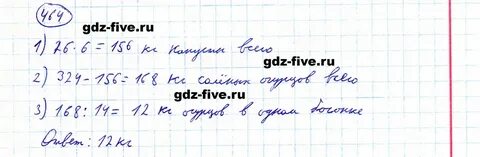 464
gdz-five.ru
1) 26·6=156 кг капусты всего
gdz-five.ru
2) 324-156=168 кг солёных огурцов всего
gdz-five.ru
3) 168:14= 12 кг огурцов в одном бочонке
Ответ: 12 кг